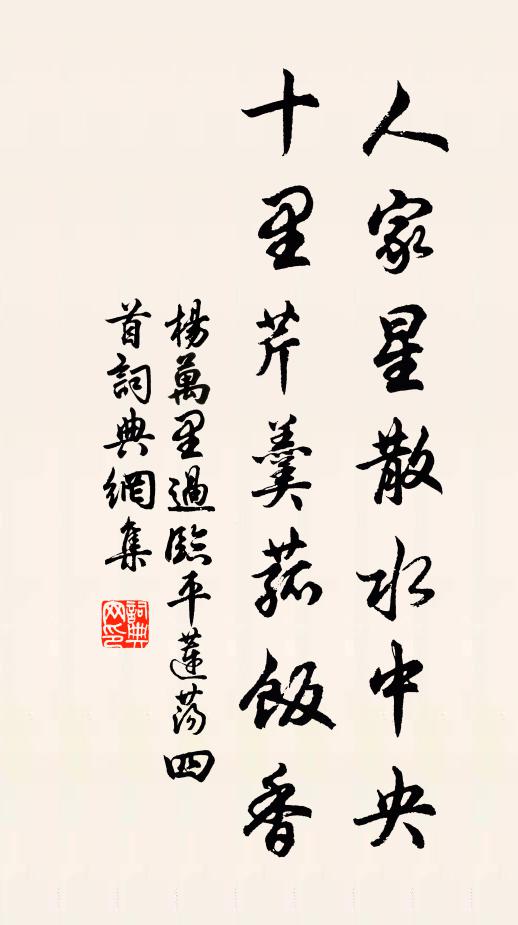 人家星散水中央
十里芹羹菰飯香
楊萬里過臨平蓮蕩四
首詞典網集
詞典
网印